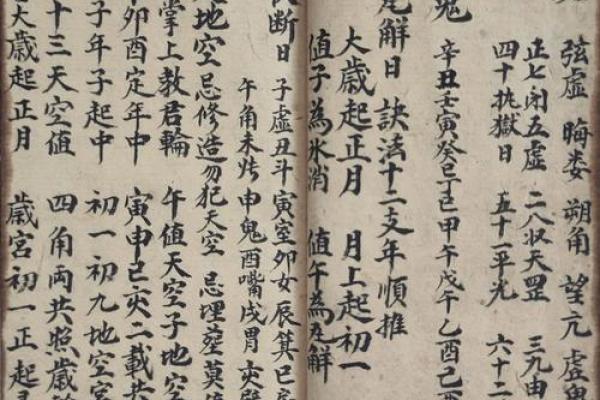 弦虛 晦婁 朔角 望亢 虛鬼
正七閉五虛 二八收天罡 三九由
四十執獄日 五十一平光 六十二
鬼
辛丑壬寅癸巳丁巳甲午戊午乙酉己酉
瓦解日 訣法十二支年順推
大歲起正月 月上起初一
值子為氷消 值午為瓦解
斷日 子虛丑斗寅室卯女辰箕巳房
午角未 申鬼酉嘴戌胃亥壁
地空忌修造勿犯天空 忌埋塟莫
掌上教君輪 午值天空子地空
卯酉定年中 寅申巳亥二載共
子年子起中 初一初九地空
十三天空値 四角兩共照歲
大歲起正月 歲宮初一正起